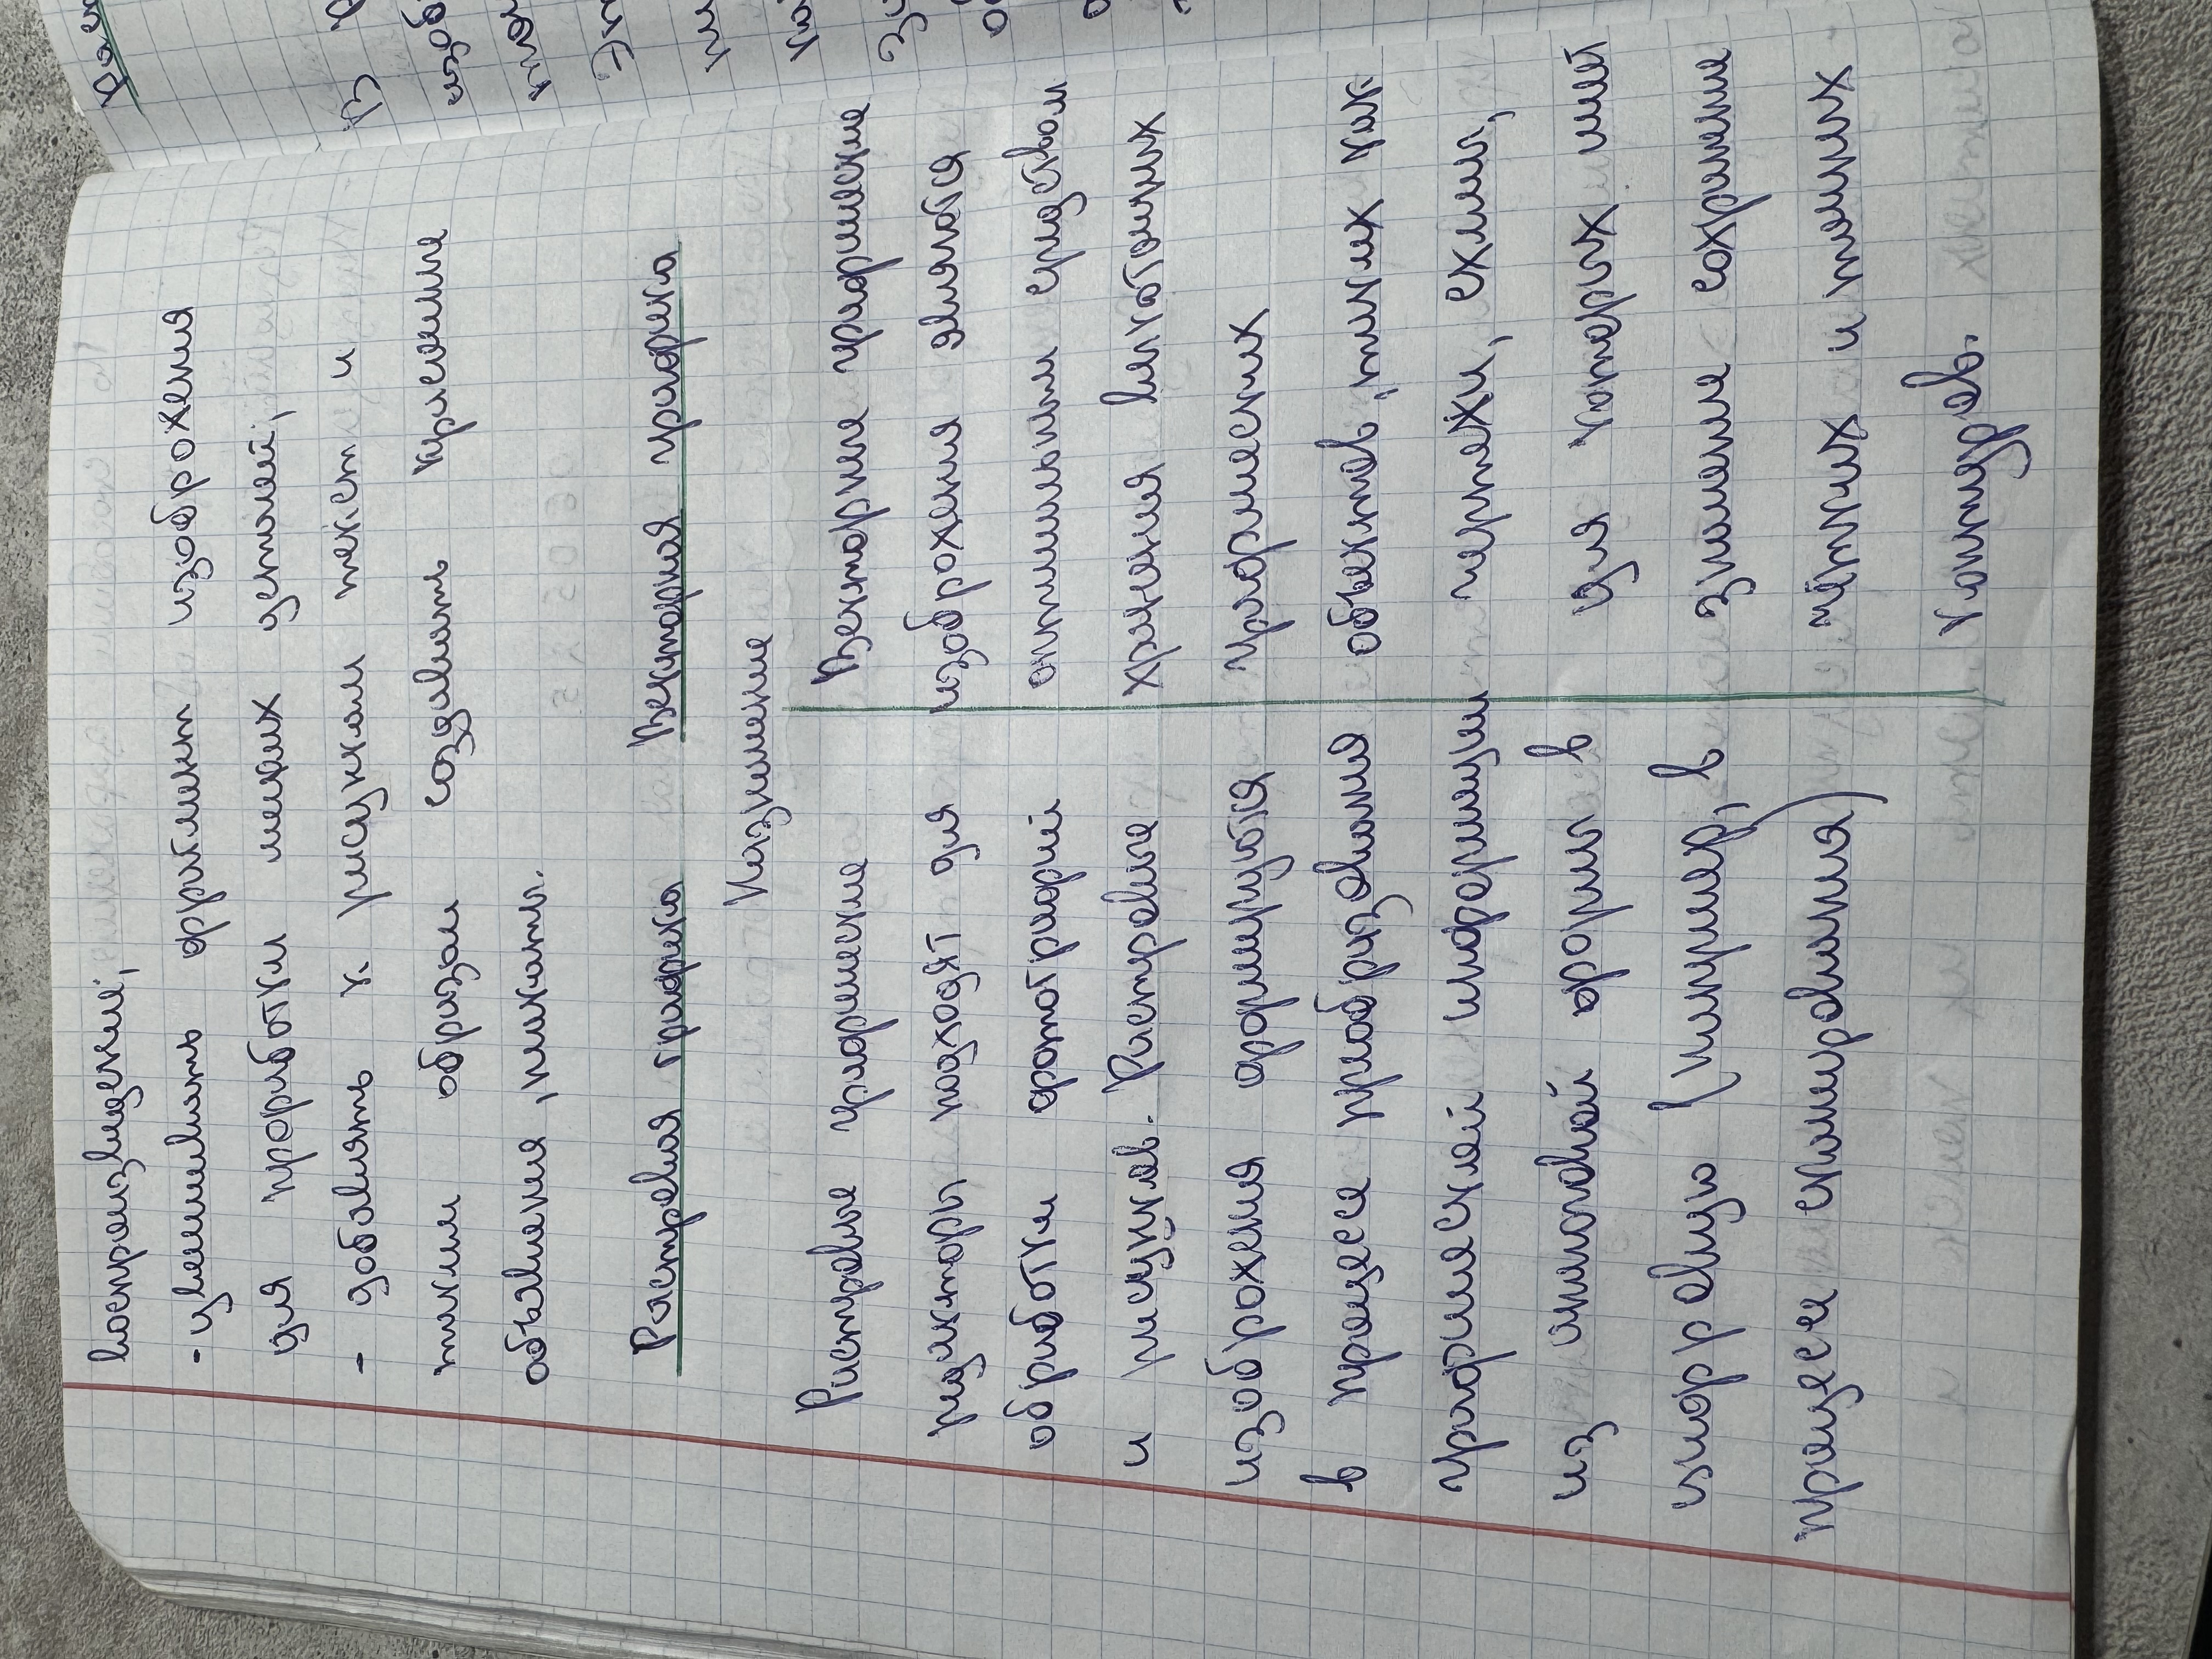 воспроизведений,
- увеличивать фрагмент изображения
для проработки мелких деталей,
- добавлять к рисункам текст и
таким образом создавать красивые
объявления, плакаты.
Растровая графика Векторная графика
Назначение
Растровые графические
редакторы подходят для
обработки фотографий
и рисунков. Растровые
изображения формируются
в процессе преобразования
графической информации
из аналоговой формы в
цифровую (например, в
процессе сканирования)
Векторные графические
изображения являются
оптимальным средством
хранения высокоточных
графических
объектов, таких как
чертежи, схемы,
для которых имеет
значение сохранение
чётких и точных
контуров.
В
Эт